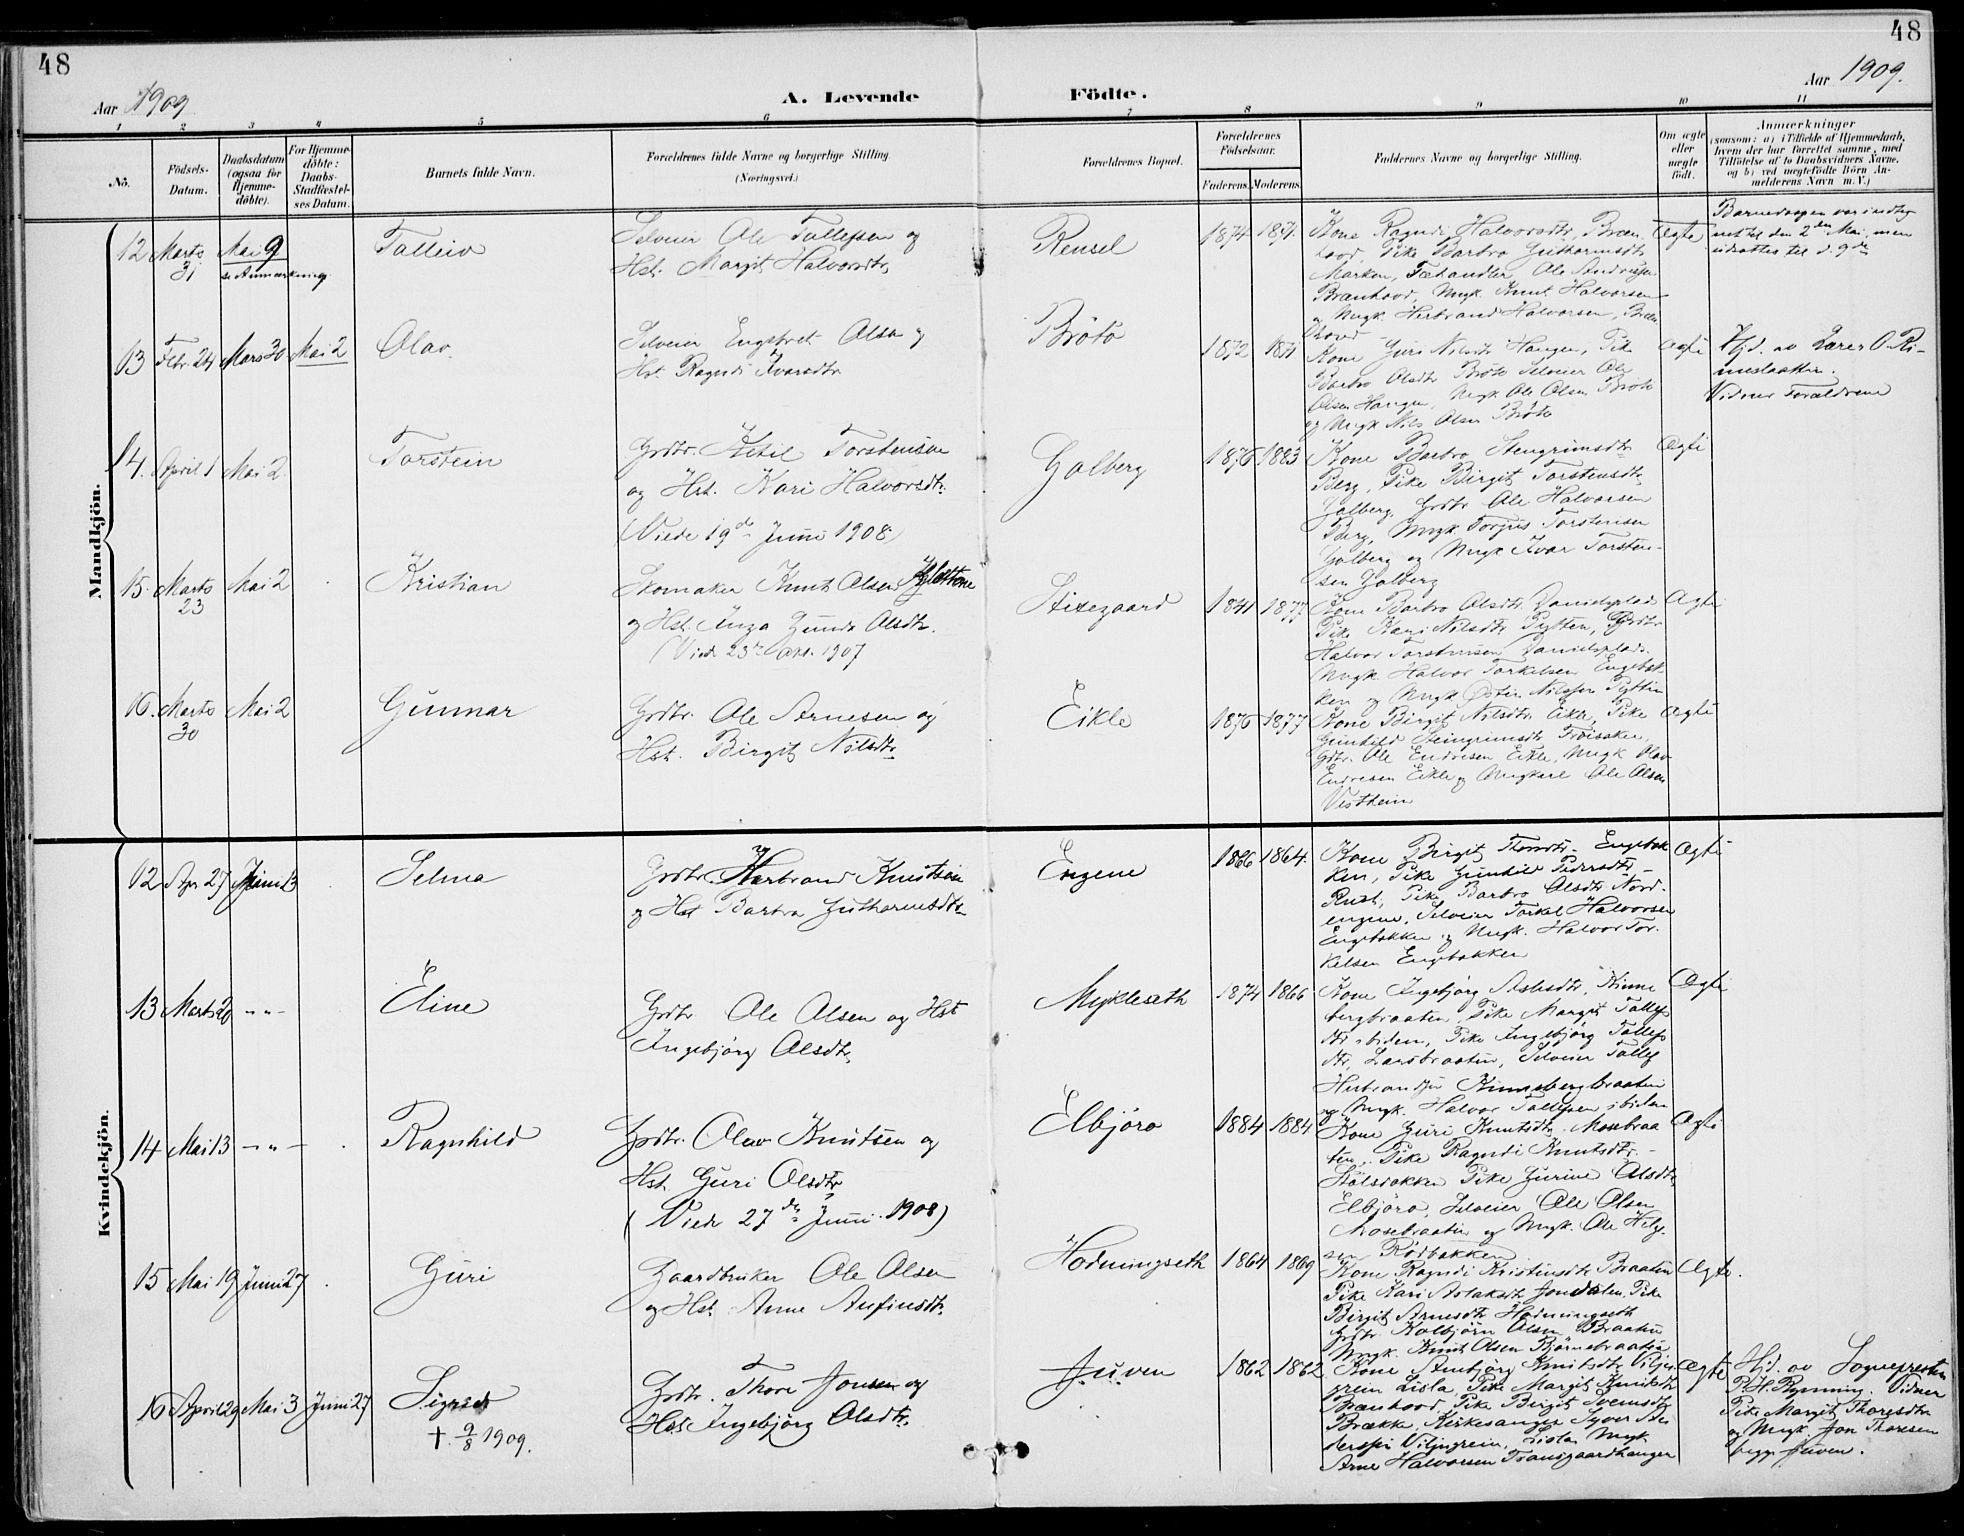 48
48
Aar 1909
A. Levende
Födte.
Aar 1909.
1
2
3
4
5
6
7
8
9
10
11
No.
Födsels-
Datum.
Daabsdatum
(ogsaa for
Hjemme-
döbte).
For Hjemme-
döbte:
Daabs-
Stadfæstel-
ses Datum.
Barnets fulde Navn.
Forældrenes fulde Navne og borgerlige Stilling.
(Næringsvei.)
Forældrenes Bopæl.
Forældrenes
Födselsaar.
Faderens.
Moderens.
Faddernes Navne og borgerlige Stilling.
Om ægte
eller
uægte
födt.
Anmærkninger
(saasom: a) i Tilfælde af Hjemmedaab,
hvem der har forrettet samme, med
Tilföielse af to Daabsvidners Navne,
og b) ved uægtefödte Börn An-
melderens Navn m. V.)
Mandkjön.
12 Marts 31 Mai 9
se Anmærkning
Tolleiv
Selveier Ole Tollefsen og
Hst. Margit Halvorsdtr.
Rensel
1874 1871.
Kone Ragndi Halvorsdtr. Bræn-
hovd, Pike Barbro Guthormsdtr
Marken, Fæhandler Ole Andresen
Brænhovd, Ungk. Knut Halvorsen
og Ungk. Herbrand Halvorsen, Bræn-
hovd
Ægte
Barnedaapen var indteg
net til den 2den Mai, men
utsattes til d. 9de
13 Febr. 24 Mars 30 Mai 2
Olav
Selveier Engebret Olsen og
Hst. Ragndi Ivarsdtr.
Bröto
1872 1871
Kone Guri Nilsdtr Haugen, Pike
Barbro Olsdtr Bröto Selveier Ole
Olsen Haugen, Ungk Ole Olsen Bröto
og Ungk Nils Olsen Bröto
Ægte
Hjd. av Lærer O. Ri-
meslaatten.
Vidner Forældrene
14. April 1 Mai 2
Torstein
Grdbr. Ketil Torstensen
og Hst. Kari Halvorsdtr.
(Viede 19de Juni 1908)
Golberg
1876 1883
Kone Barbro Stengrimsdtr
Berg, Pike Birgit Torstensdtr
Golberg, Grdbr Ole Halvorsen
Berg, Ungk Torgus Torstensen
Golberg og Ungk Ivar Torsten-
sen Golberg
Ægte
15. Marts 23 Mai 2
Kristian
Skomaker Knut Olsen
og Hst. Inga Gunda Olsdtr.
(Viede 23de 1907
Stixegaard
1841 1877
Kone Barbro Olsdtr. Danielsplads
Pike Kari Nilsdtr Pytten, Grdbr
Halvor Torstensen Danielsplads.
Ungk Halvor Torkelsen Engebak-
ken og Ungk Östen Nilssen Pytten
Ægte
16. Marts 30 Mai 2
Gunnar
Grdbr. Ole Arnesen og
Hst. Birgit Nilsdtr
Eikle
1876 1877
Kone Birgit Nilsdtr. Eikle, Pike
Gunhild Steingrimsdtr Fröisaker,
Grdbr. Ole Endresen Eikle, Ungk Olav
Endresen Eikle og Ungkarl Ole Olsen
Vestheim
Ægte
Kvindekjön.
12 Apr 27 Juni 13
Selma
Grdbr. Herbrand Knutsen
og Hst Barbra Guthormsdtr
Engene
1866 1864.
Kone Birgit Thorsdtr. Engebak
ken, Pike Gunhild Pedersdtr
Rust, Pike Barbro Olsdtr Nord-
engene, Selveier Torkel Halvorsen
Engebakken og Ungk. Halvor Tor-
kelsen Engebakken
Ægte
13 Marts 20 - " -
Eline
Grdbr Ole Olsen og Hst
Ingebjörg Olsdtr.
Mykleseth
1874 1866
Kone Ingebjörg Aslesdtr, Kinne
bergbraaten, Pike Margit Tollefs
dtr ibiden, Pike Ingebjörg Tollefs
dtr, Larsbraaten, Selveier Tollef
Herbrandsen Kinnebergbraaten
og Ungk. Halvor Tollefsen ibiden
Ægte
14 Mai 13 - " -
Ragnhild
Grdbr. Olav Knutsen og
Hst. Guri Olsdtr
(Viede 27de Juni 1908)
Elbjöro
1884 1884
Kone Guri Knutsdtr. Mosebraa
ten, Pike Ragndi Knutsdtr.
Stölsbakken Pike Gurine Olsdtr,
Elbjöro, Selveier Ole Olsen
Mosebraaten og Ungk. Ole Helge-
sen Rödbakken
Ægte
15 Mai 19 Juni 27
Guri
Gaardbruker Ole Olsen
og Hst. Anne Anfinsdtr.
Hodningseth
1864 1869
Kone Ragndi Kristensdtr Braaten
Pike Kari Aslaksdtr Jondalen, Pike
Birgit Arnesdtr Hodningseth
Grdbr. Kolbjörn Olsen Braaten
Ungk. Knut Olsen Björnebraaten
Ægte.
16 April 29 Mai 3 Juni 27
Sigrid
† 9/8 1909.
Grdbr. Thore Jonsen og
Hst. Ingebjörg Olsdtr.
Juven
1862 1862
Kone Ambjörg Knutsdtr Viljug-
rein Lisla, Pike Margit Knutsdtr
Brænhovd, Pike Birgit Svensdtr
Brække, Kirkesanger Syver An-
derssen Viljugrein, Lisla Ungk.
Arne Halvorsen Transgaardhaugen
Ægte
Hjd. av Sognepresten
P.H. Rynning. Vidner
Pike Margit Thoresdtr
og Ungk. Jon Thoresen
begge Juven.